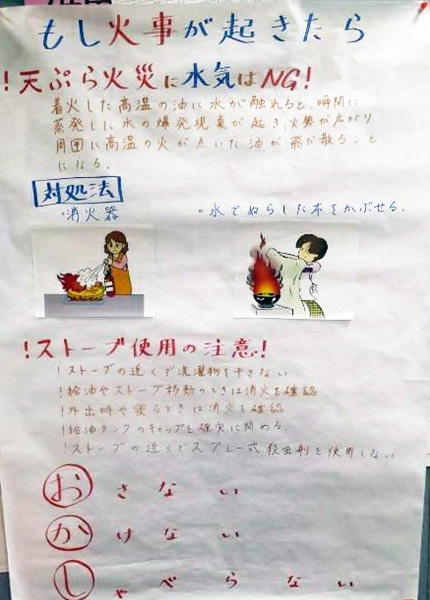 もし火事が起きたら
!天ぷら火災に水気はNG!
着火した高温の油に水が触れると、瞬間に
蒸発した水の爆発現象が起き、火勢が広がり
周囲に高温の火が点いた油が飛び散ること
になる。
対処法
・消火器
・水でぬらした布をかぶせる。
!ストーブ使用の注意!
!ストーブの近くで洗濯物を干さない
!給油やストーブ移動のときは消火を確認
!外出時や寝るときは消火を確認
!給油タンクのキャップを確実に閉める。
!ストーブの近くでスプレー式殺虫剤を使用しない
おさない
かけない
しゃべらない